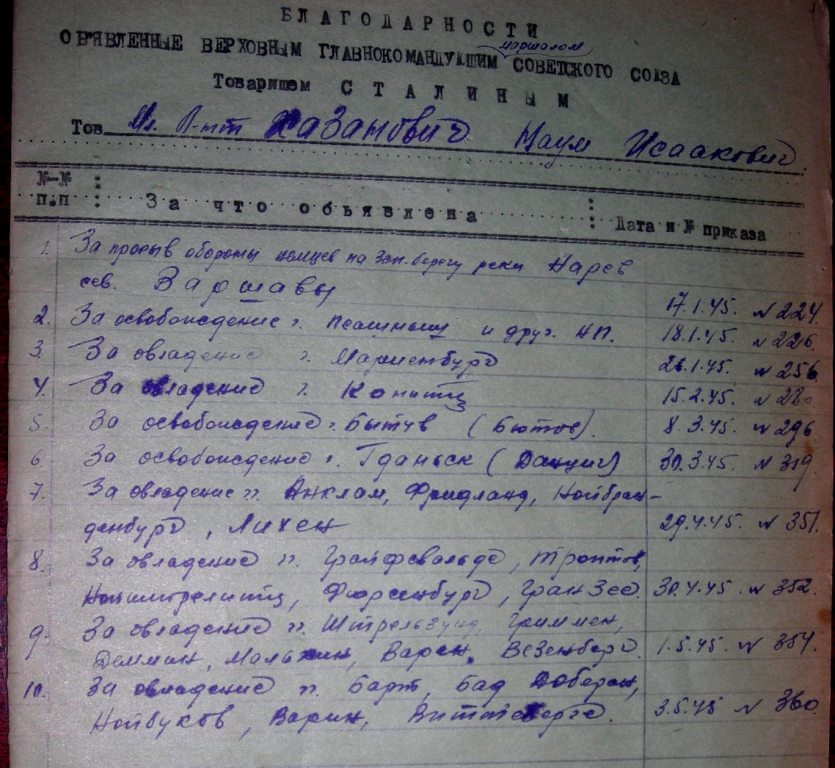 БЛАГОДАРНОСТИ
ОБ'ЯВЛЕННЫЕ ВЕРХОВНЫМ ГЛАВНОКОМАНДУЮЩИМ маршалом СОВЕТСКОГО СОЮЗА
Товарищем СТАЛИНЫМ
Тов. Мл. Л-нт Хазанович Наум Исаакович
№-№ п.п За что объявлена Дата и № приказа
1. За прорыв обороны немцев на зап. берегу реки Нарев
сев. Варшавы 17.1.45. № 224.
2. За освобождение г. и друг. НП. 18.1.45. № 226.
3. За овладение г. Мариенбург 26.1.45. № 256
4. За овладение г. Конитц 15.2.45. № 280
5. За освобождение г. Бытув (Бютов). 8.3.45. № 296
6 За освобождение г. Гданьск (Данциг) 30.3.45. № 319.
7. За овладение гг. Анклам, Фридланд, Нойбран-
денбург, Лихен 29.4.45. № 351.
8. За овладение гг. Грайфсвальд, Трептов,
Нойштрелитц, Фюрстенбург, Гранзее. 30.4.45 № 352.
9. За овладение гг. Штральзунд, Гриммен,
Деммин, Мальхин, Варен, Везенберг. 1.5.45. № 354.
10. За овладение гг. Барт, Бад Доберан,
Нойбуков, Варин, Виттенберге. 3.5.45 № 360